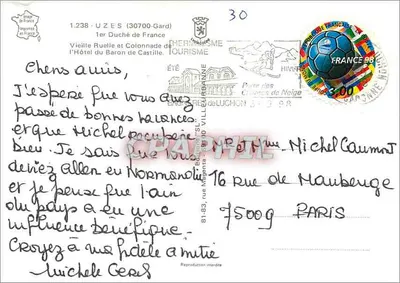 30
1.238 - UZES (30700-Gard)
1er Duché de France
Vieille Ruelle et Colonnade de
l'Hôtel du Baron de Castille.
THERMALISME
TOURISME
ÉTÉ
HIVER
LUCHON
FRANCE 98
3,00
Chers amis,
J'espère que vous avez
passé de bonnes vacances
et que Michel récupère
bien. Je sais que vous
deviez aller en Normandie
et je pense que l'air
du pays a eu une
influence bénéfique.
Croyez à ma fidèle amitié
Michele
Mr et Mme Michel Caumont
16 rue de Maubeuge
75009 PARIS
81-83, rue
VILLEURBANNE
Reproduction interdite
CHAPHIL